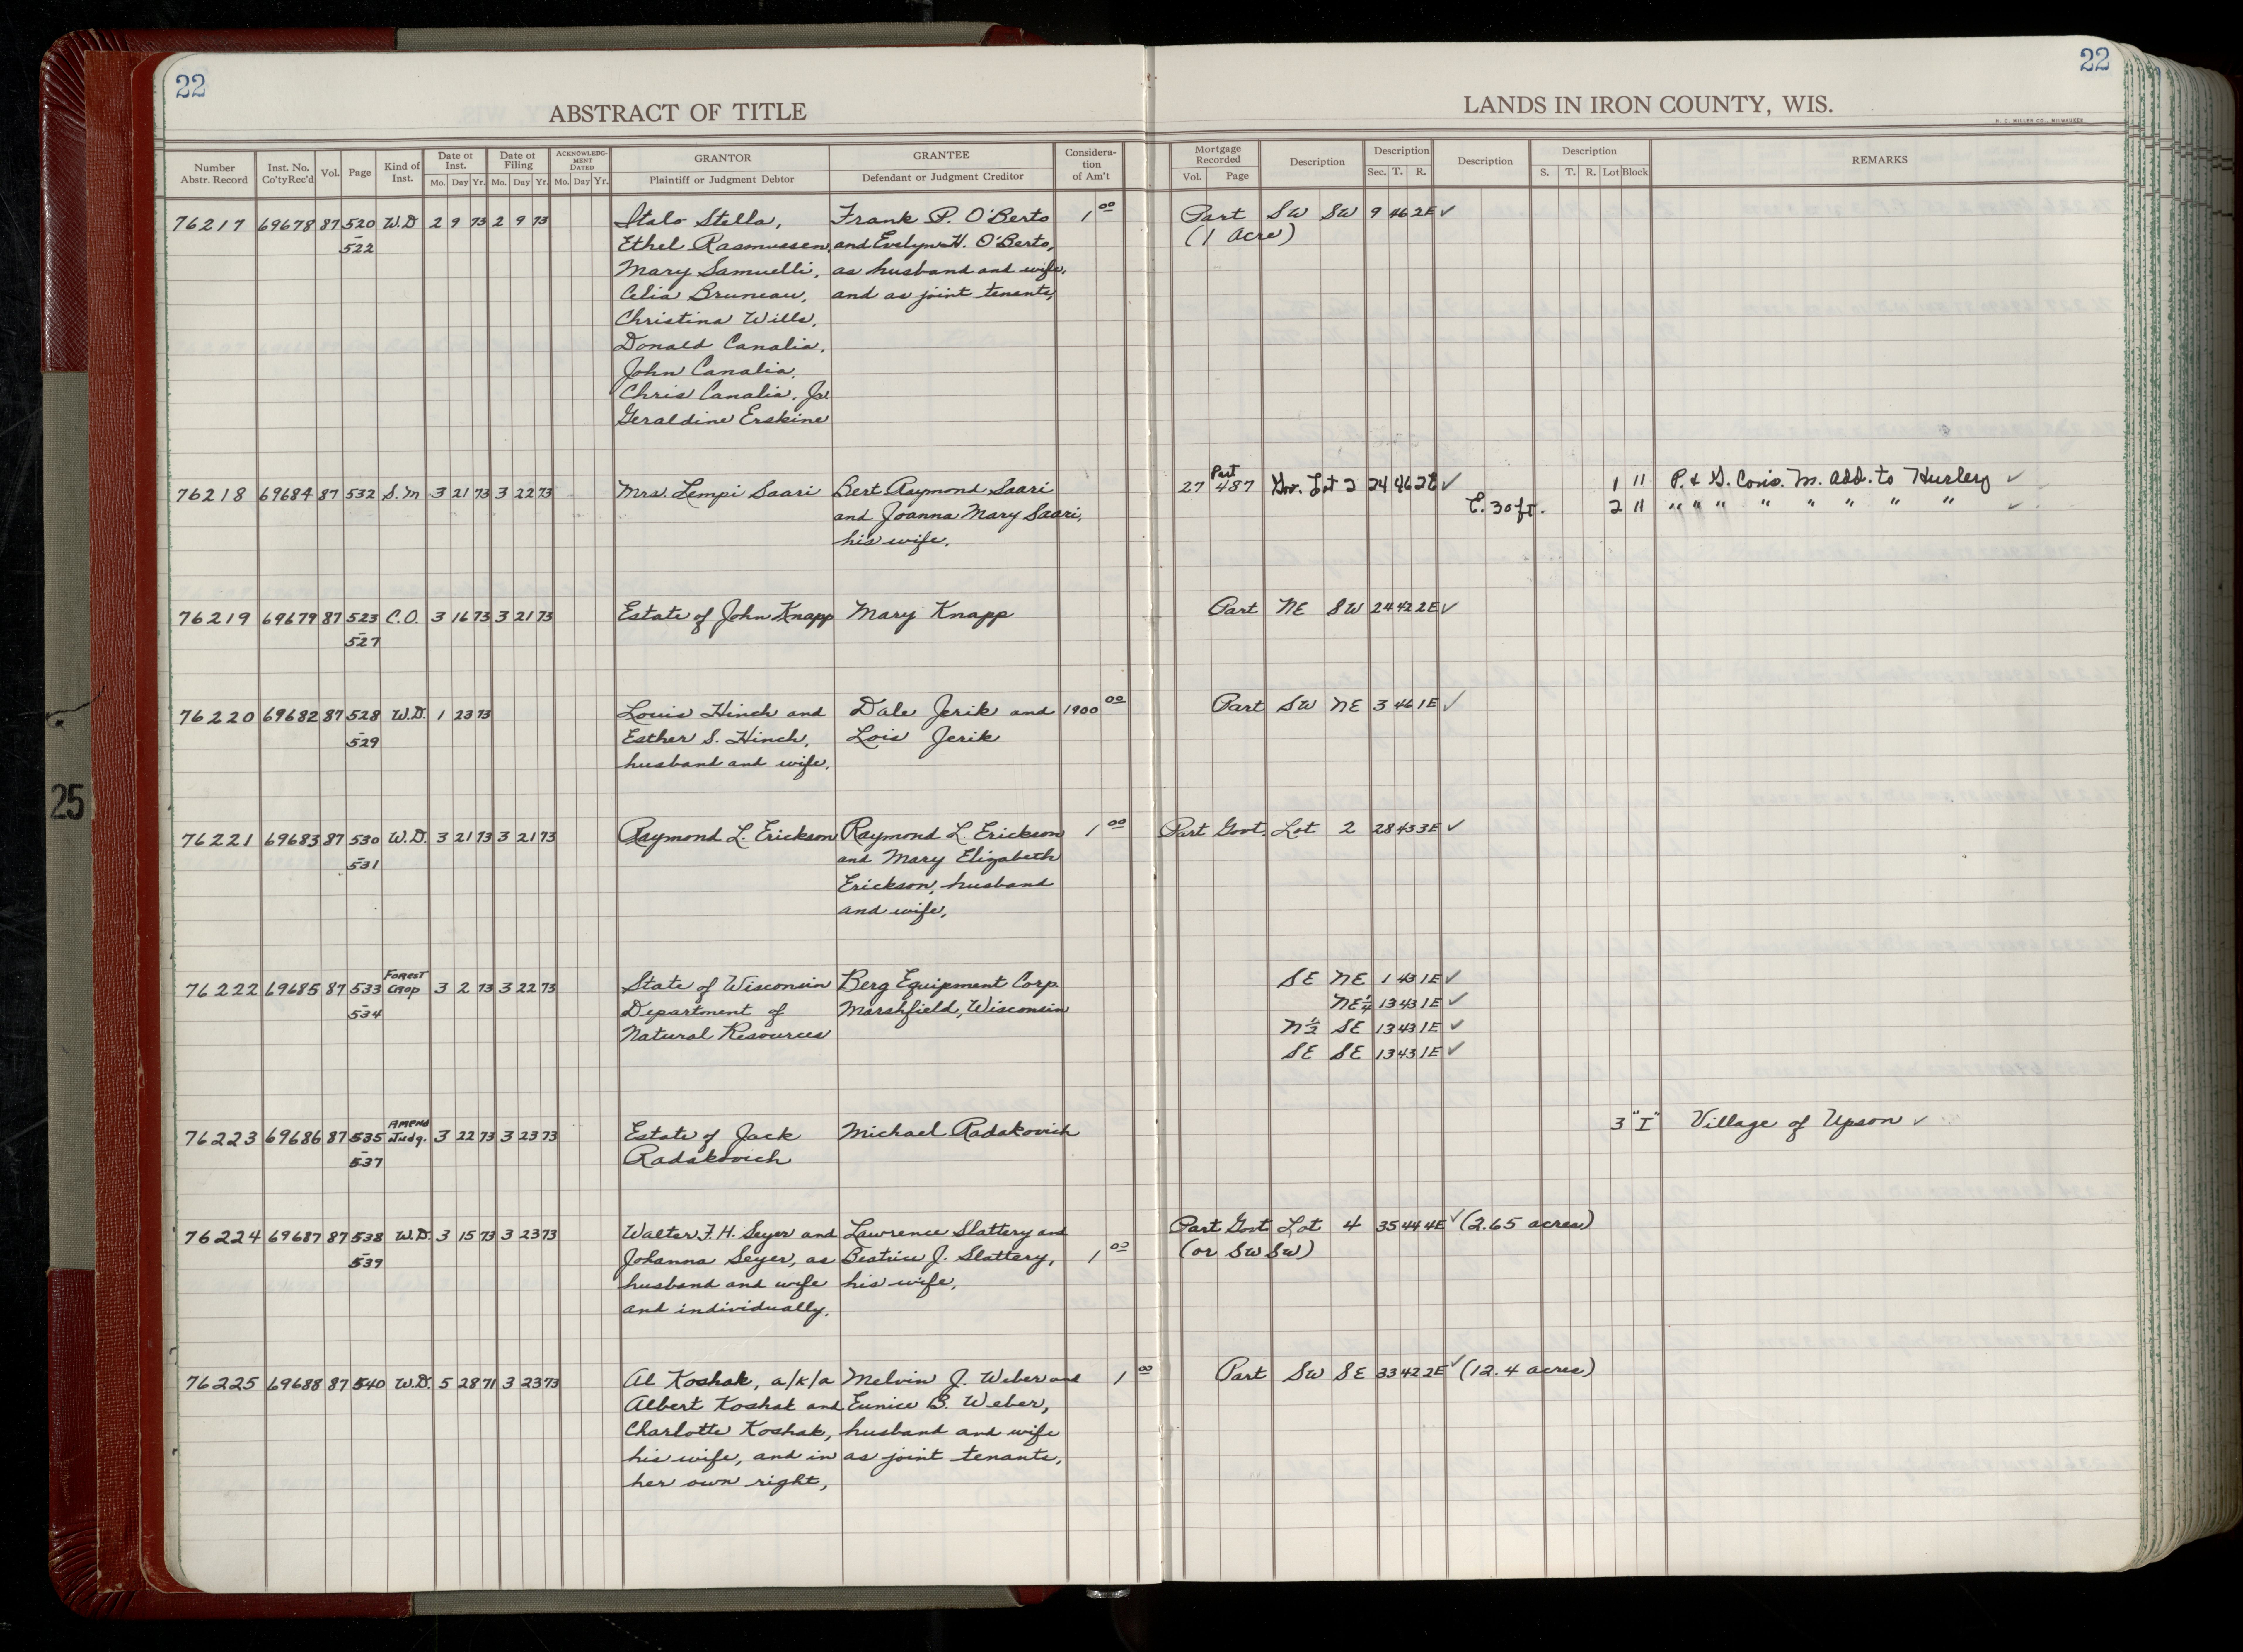 22
22
ABSTRACT OF TITLE
LANDS IN IRON COUNTY, WIS.
H. C. MILLER CO., MILWAUKEE
Number Abstr. Record
Inst. No. Co'ty Rec'd
Vol.
Page
Kind of Inst.
Date of Inst. Mo. Day Yr.
Date of Filing Mo. Day Yr.
ACKNOWLEDG-MENT DATED Mo. Day Yr.
GRANTOR Plaintiff or Judgment Debtor
GRANTEE Defendant or Judgment Creditor
Considera-tion of Am't
Mortgage Recorded Vol. Page
Description
Description Sec. T. R.
Description
Description S. T. R. Lot Block
REMARKS
76217 69678 87 520 W.D 2 9 73 2 9 73 Italo Stella, Frank P. O'Berto 1 00 Part SW SW 9 46 2E ✓
- 522 Ethel Rasmussen, and Evelyn H. O'Berto, (1 Acre)
Mary Samuelli, as husband and wife,
Celia Bruneau, and as joint tenants,
Christina Wills,
Donald Canalia,
John Canalia,
Chris Canalia, Jr.
Geraldine Erskine
76218 69684 87 532 S.M 3 21 73 3 22 73 Mrs. Lempi Saari Bert Raymond Saari 27 487 Part Gov. Lot 2 24 46 2E ✓ 1 11 P. & G. Cons. M. Add. to Hurley ✓
and Joanna Mary Saari, E. 30 ft. 2 11 " " " " " " " " ✓
his wife.
76219 69679 87 523 C.O. 3 16 73 3 21 73 Estate of John Knapp Mary Knapp Part NE SW 24 42 2E ✓
- 527
76220 69682 87 528 W.D. 1 23 73 Louis Hinch and Dale Jerik and 1900 00 Part SW NE 3 46 1E ✓
- 529 Esther S. Hinch, Lois Jerik
husband and wife,
76221 69683 87 530 W.D. 3 21 73 3 21 73 Raymond L. Erickson Raymond L. Erickson 1 00 Part Govt. Lot 2 28 43 3E ✓
- 531 and Mary Elizabeth
Erickson, husband
and wife,
76222 69685 87 533 Forest Crop 3 2 73 3 22 73 State of Wisconsin Berg Equipment Corp. SE NE 1 43 1E ✓
- 534 Department of Marshfield, Wisconsin NE¼ 13 43 1E ✓
Natural Resources N½ SE 13 43 1E ✓
SE SE 13 43 1E ✓
76223 69686 87 535 Amend Judg. 3 22 73 3 23 73 Estate of Jack Michael Radakovich 3 "I" Village of Upson ✓
- 537 Radakovich
76224 69687 87 538 W.D. 3 15 73 3 23 73 Walter F.H. Seyer and Lawrence Slattery and Part Govt. Lot 4 35 44 4E ✓ (2.65 acres)
- 539 Johanna Seyer, as Beatrice J. Slattery, 1 00 (or SW SW)
husband and wife his wife,
and individually.
76225 69688 87 540 W.D. 5 28 71 3 23 73 Al Koshak, a/k/a Melvin J. Weber and 1 00 Part SW SE 33 42 2E ✓ (12.4 acres)
Albert Koshak and Eunice B. Weber,
Charlotte Koshak, husband and wife
his wife, and in as joint tenants,
her own right,
25